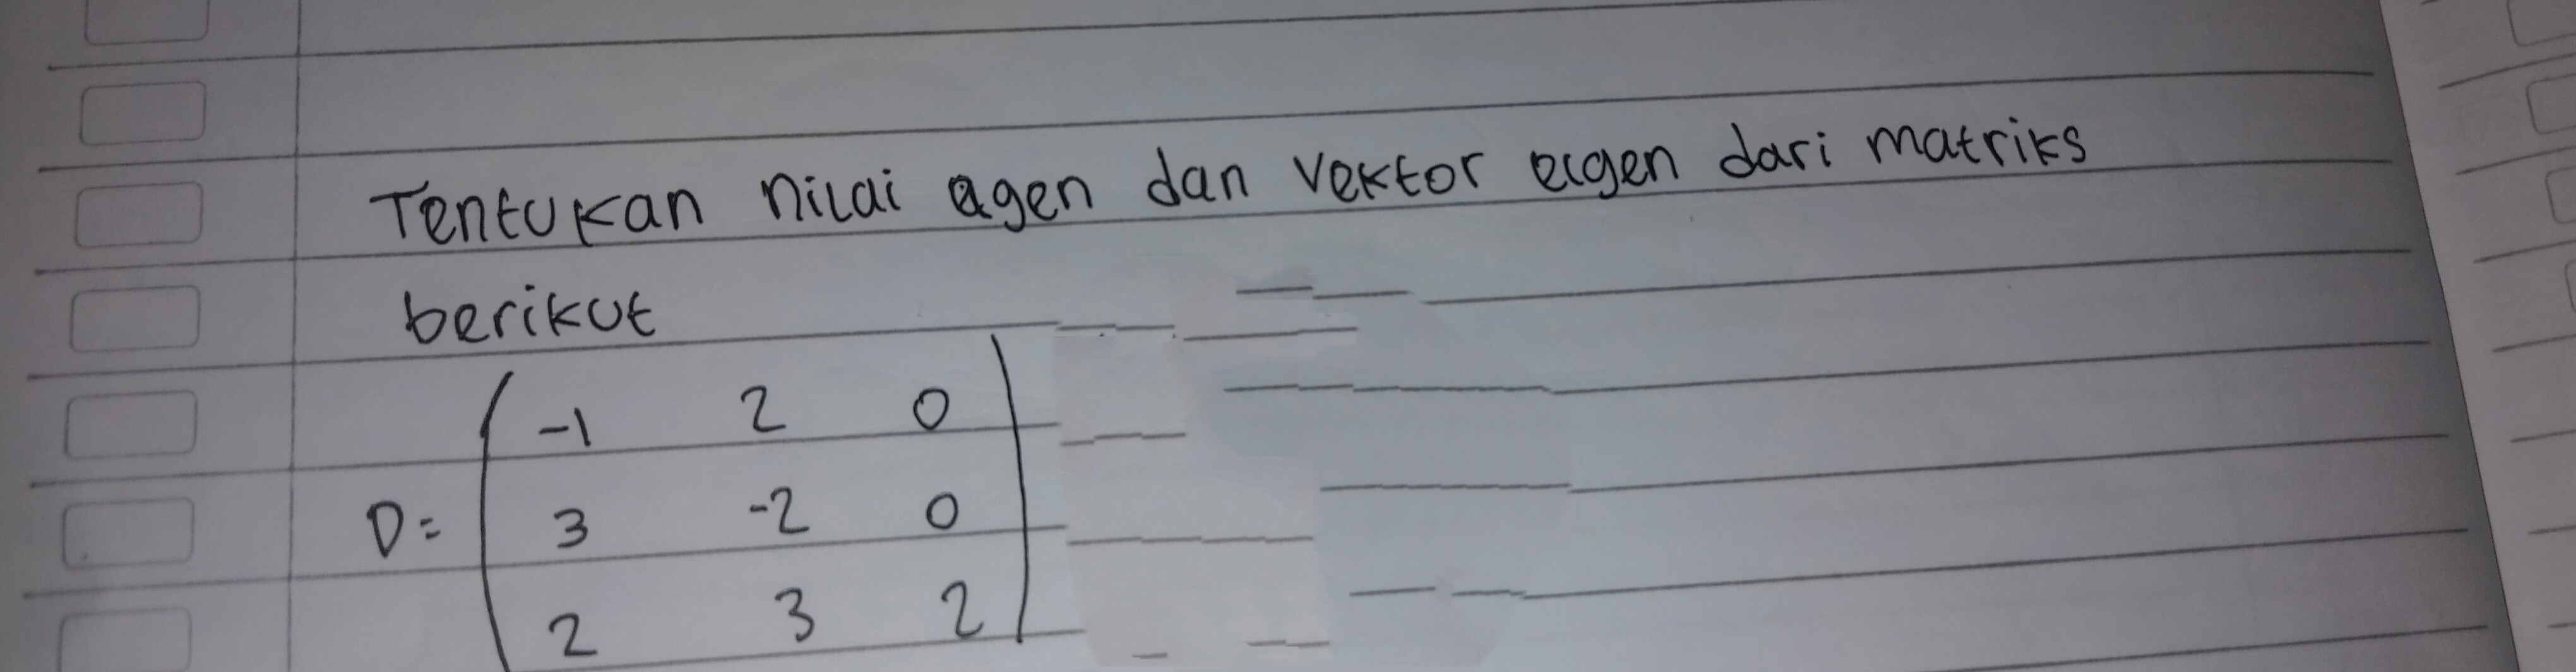 Tentukan nilai agen dan vektor eigen dari matriks
berikut
-1 2 0
D= 3 -2 0
2 3 2